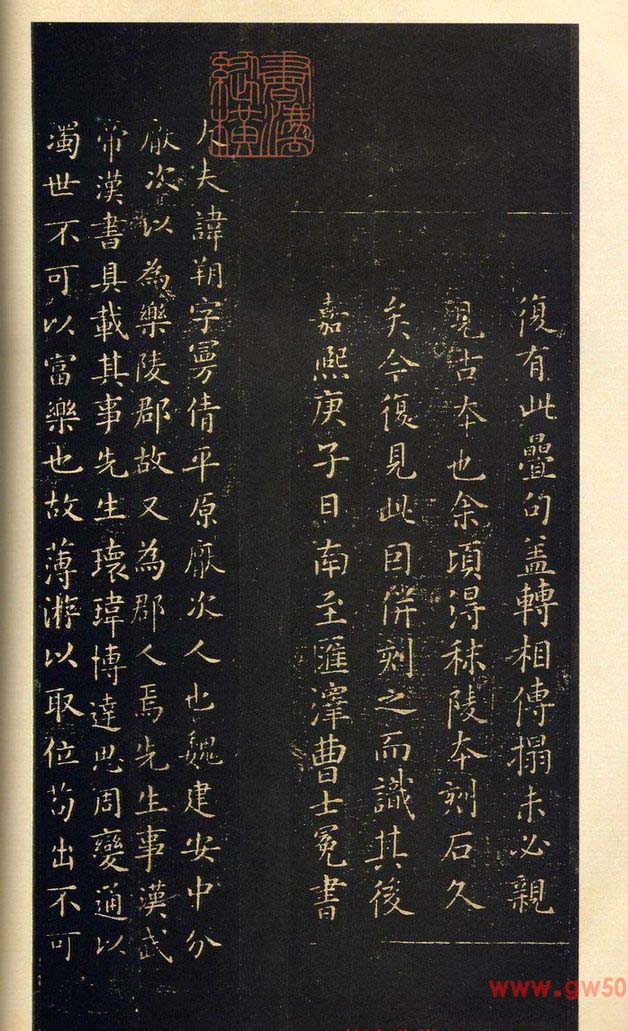 復有此疊句盖轉相傳搨未必親
見古本也余頃得秣陵本刻石久
矣今復見此因併刻之而識其後
嘉熈庚子日南至匯澤曹士冕書
大夫諱朔字曼倩平原厭次人也魏建安中分
厭次以為樂陵郡故又為郡人焉先生事漢武
帝漢書具載其事先生瓌瑋博達思周變通以
濁世不可以富樂也故薄遊以取位苟出不可
www.gw50